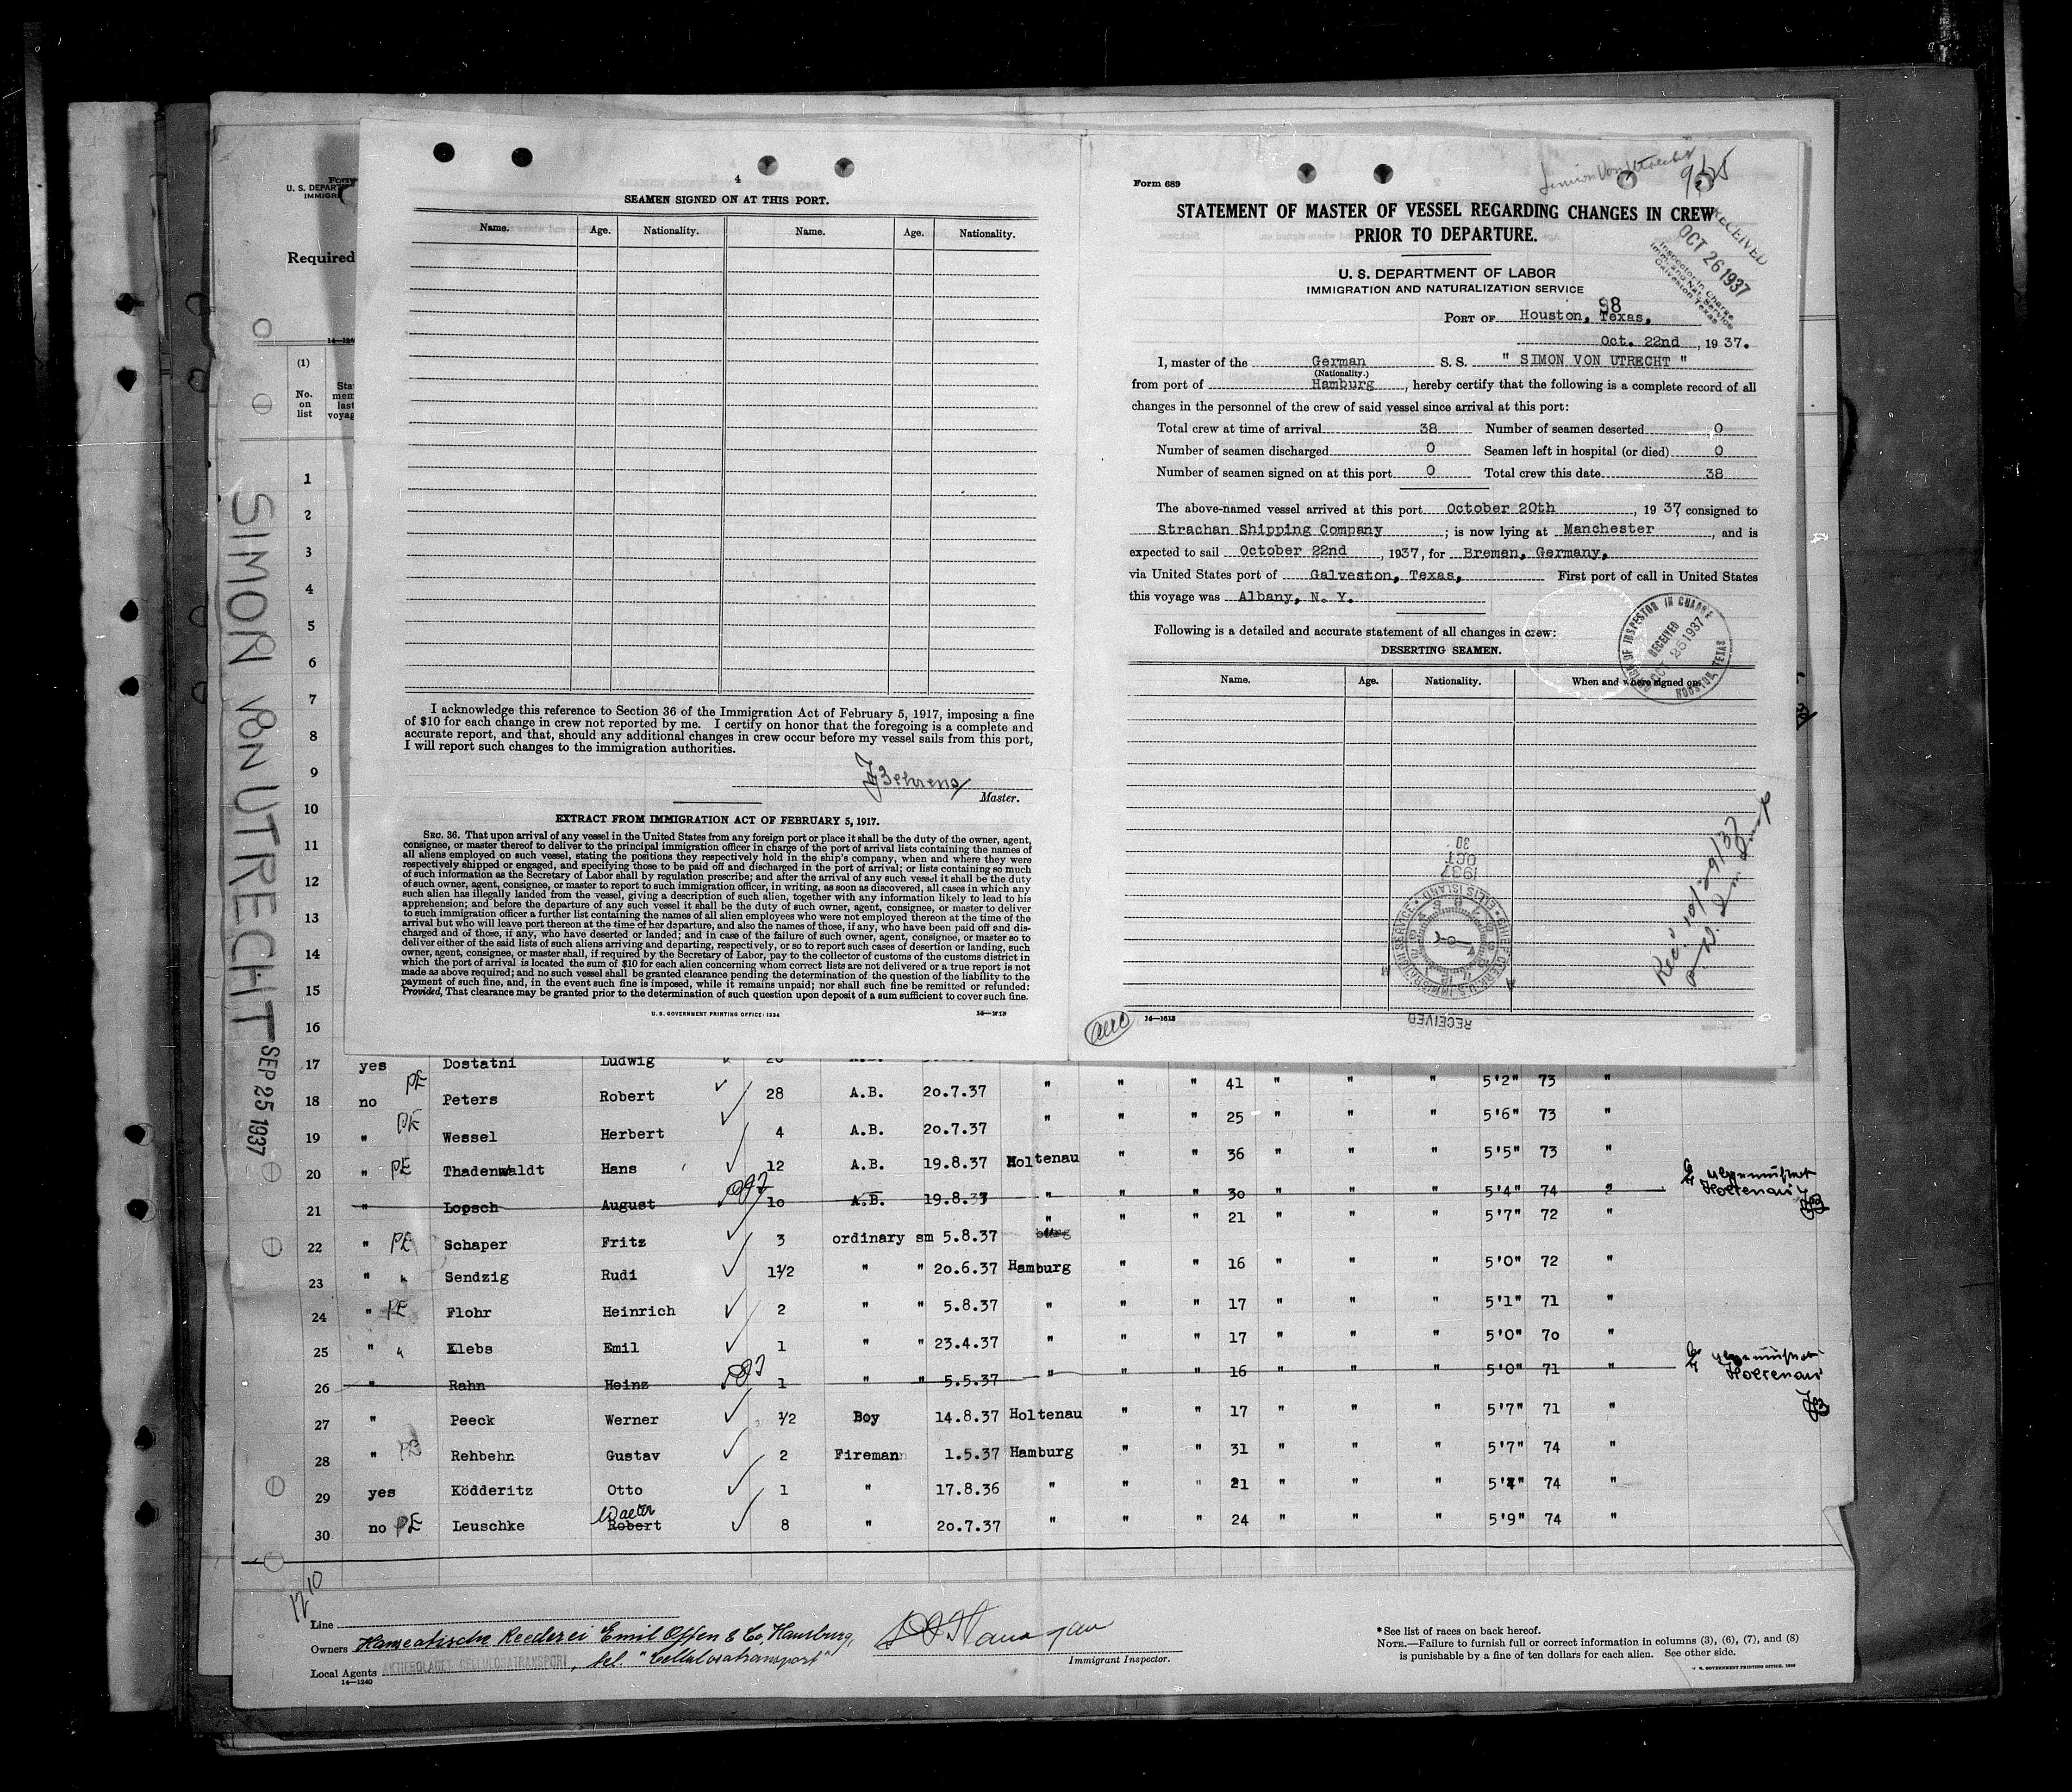 SIMON VON UTRECHT SEP 25 1937
Form
U. S. DEPART
IMMIGR
Required
14—124
(1)
No.
on
list
Stat
mem
last
voyag
1
2
3
4
5
6
7
8
9
10
11
12
13
14
15
16
4
SEAMEN SIGNED ON AT THIS PORT.
Name. Age. Nationality. Name. Age. Nationality.
I acknowledge this reference to Section 36 of the Immigration Act of February 5, 1917, imposing a fine
of $10 for each change in crew not reported by me. I certify on honor that the foregoing is a complete and
accurate report, and that, should any additional changes in crew occur before my vessel sails from this port,
I will report such changes to the immigration authorities.
JBehrens
Master.
EXTRACT FROM IMMIGRATION ACT OF FEBRUARY 5, 1917.
SEC. 36. That upon arrival of any vessel in the United States from any foreign port or place it shall be the duty of the owner, agent,
consignee, or master thereof to deliver to the principal immigration officer in charge of the port of arrival lists containing the names of
all aliens employed on such vessel, stating the positions they respectively hold in the ship's company, when and where they were
respectively shipped or engaged, and specifying those to be paid off and discharged in the port of arrival; or lists containing so much
of such information as the Secretary of Labor shall by regulation prescribe; and after the arrival of any such vessel it shall be the duty
of such owner, agent, consignee, or master to report to such immigration officer, in writing, as soon as discovered, all cases in which any
such alien has illegally landed from the vessel, giving a description of such alien, together with any information likely to lead to his
apprehension; and before the departure of any such vessel it shall be the duty of such owner, agent, consignee, or master to deliver
to such immigration officer a further list containing the names of all alien employees who were not employed thereon at the time of the
arrival but who will leave port thereon at the time of her departure, and also the names of those, if any, who have been paid off and dis-
charged and of those, if any, who have deserted or landed; and in case of the failure of such owner, agent, consignee, or master so to
deliver either of the said lists of such aliens arriving and departing, respectively, or so to report such cases of desertion or landing, such
owner, agent, consignee, or master shall, if required by the Secretary of Labor, pay to the collector of customs of the customs district in
which the port of arrival is located the sum of $10 for each alien concerning whom correct lists are not delivered or a true report is not
made as above required; and no such vessel shall be granted clearance pending the determination of the question of the liability to the
payment of such fine, and, in the event such fine is imposed, while it remains unpaid; nor shall such fine be remitted or refunded:
Provided, That clearance may be granted prior to the determination of such question upon deposit of a sum sufficient to cover such fine.
U. S. GOVERNMENT PRINTING OFFICE: 1934
Simon Von Utrecht
Form 689
STATEMENT OF MASTER OF VESSEL REGARDING CHANGES IN CREW
PRIOR TO DEPARTURE.
RECEIVED
OCT 26 1937
Inspector in Charge
Imm. and Nat. Service
Galveston Texas
U. S. DEPARTMENT OF LABOR
IMMIGRATION AND NATURALIZATION SERVICE
98
PORT OF Houston, Texas,
Oct. 22nd , 19 37.
I, master of the German S. S. " SIMON VON UTRECHT "
(Nationality.)
from port of Hamburg , hereby certify that the following is a complete record of all
changes in the personnel of the crew of said vessel since arrival at this port:
Total crew at time of arrival 38 Number of seamen deserted 0
Number of seamen discharged 0 Seamen left in hospital (or died) 0
Number of seamen signed on at this port 0 Total crew this date 38
The above-named vessel arrived at this port October 20th , 19 37, consigned to
Strachan Shipping Company ; is now lying at Manchester , and is
expected to sail October 22nd , 1937, for Bremen, Germany,
via United States port of Galveston, Texas, First port of call in United States
this voyage was Albany, N. Y.
Following is a detailed and accurate statement of all changes in crew:
DESERTING SEAMEN.
OFFICE OF INSPECTOR IN CHARGE
RECEIVED
OCT 25 1937
HOUSTON, TEXAS
Name. Age. Nationality. When and where signed on.
1937
OCT
30
CHIEF CLERK U.S. IMMIGRATION SERVICE ELLIS ISLAND
RECEIVED
Rec'd 10/29/37
14—1613
17 yes Dostatni Ludwig
18 no PE Peters Robert 28 A.B. 20.7.37 " " " 41 " " " 5'2" 73 "
19 " PE Wessel Herbert 4 A.B. 20.7.37 " " " 25 " " " 5'6" 73 "
20 " PE Thadenwaldt Hans 12 A.B. 19.8.37 Holtenau " " 36 " " " 5'5" 73 "
21 " Lopsch August 10 A.B. 19.8.37 " " " 30 " " " 5'4" 74 " abgemustert Holtenau
22 " PE Schaper Fritz 3 ordinary sm 5.8.37 " " " 21 " " " 5'7" 72 "
23 " " Sendzig Rudi 1½ " " 20.6.37 Hamburg " " 16 " " " 5'0" 72 "
24 " PE Flohr Heinrich 2 " " 5.8.37 " " " 17 " " " 5'1" 71 "
25 " " Klebs Emil 1 " " 23.4.37 " " " 17 " " " 5'0" 70 "
26 " Rahn Heinz 1 " " 5.5.37 " " " 16 " " " 5'0" 71 " abgemustert Holtenau
27 " Peeck Werner ½ Boy 14.8.37 Holtenau " " 17 " " " 5'7" 71 "
28 " PE Rehbehn Gustav 2 Fireman 1.5.37 Hamburg " " 31 " " " 5'7" 74 "
29 yes Ködderitz Otto 1 " 17.8.36 " " " 21 " " " 5'4" 74 "
30 no PE Leuschke Walter Robert 8 " 20.7.37 " " " 24 " " " 5'9" 74 "
Line
Owners Hanseatische Reederei Emil Offen & Co, Hamburg,
Local Agents AKTIEBOLAGET CELLULOSATRANSPORT, tel. "Cellulosatransport"
14—1240
Immigrant Inspector.
* See list of races on back hereof.
NOTE.—Failure to furnish full or correct information in columns (3), (6), (7), and (8)
is punishable by a fine of ten dollars for each alien. See other side.
U. S. GOVERNMENT PRINTING OFFICE, 1936